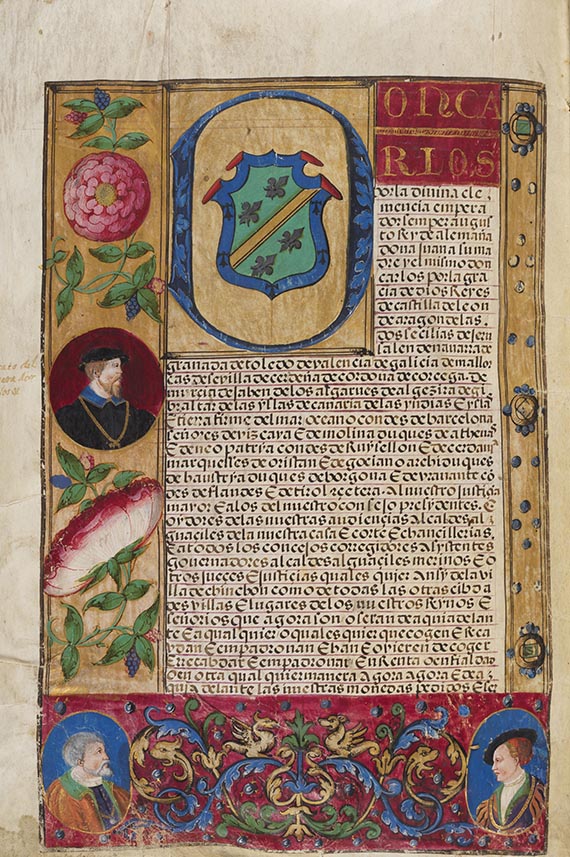 DONCA
RLOS
por la divina cle
mencia empera
dor semper augus
to Rey de alemaña
doña Juana su ma
dre y el mismo don
carlos por la gra
cia de dios Reyes
de castilla de leon
de aragon de las
dos secilias de Jeru
salen de navarra de
granada de toledo de valencia de galicia de mallor
cas de sevilla de cerdeña de cordova de corcega. de
murcia de Jahen de los algarves de algezira de gi
braltar de las yslas de canaria de las yndias E ysla
s E tierra firme del mar oceano condes de barcelona
señores de vizcaya E de molina duques de athenas
E de neopatrya condes de Ruysellon E de cerdan
marqueses de oristan E de gocian o archiduques
de baustrya duques de borgoña E de vravante co
des de flandes E de tirol ecetera. Al nuestro Justicia
mayor E a los del nuestro consejo presydentes. E
oydores de las nuestras audiencias Alcaldes al
guaciles de la nuestra casa E corte E chancillerias,
E a todos los concejos corregidores Asystentes
governadores alcaldes alguaciles merinos E o
tros jueces E justicias quales quier Ansy de la vi
la de chincho como de todas las otras cibda
des villas E lugares de los nuestros Reynos E
señorios que agora son o seran de aqui adelan
te E a qual quier o quales quier que cogen E Reca
dan E enpadronan E han E ovieren de coger
E recabdar E enpadronar En Renta o en fialdad
o en otra qual quier manera Agora E de a
qui adelante las nuestras monedas pedidos E ser